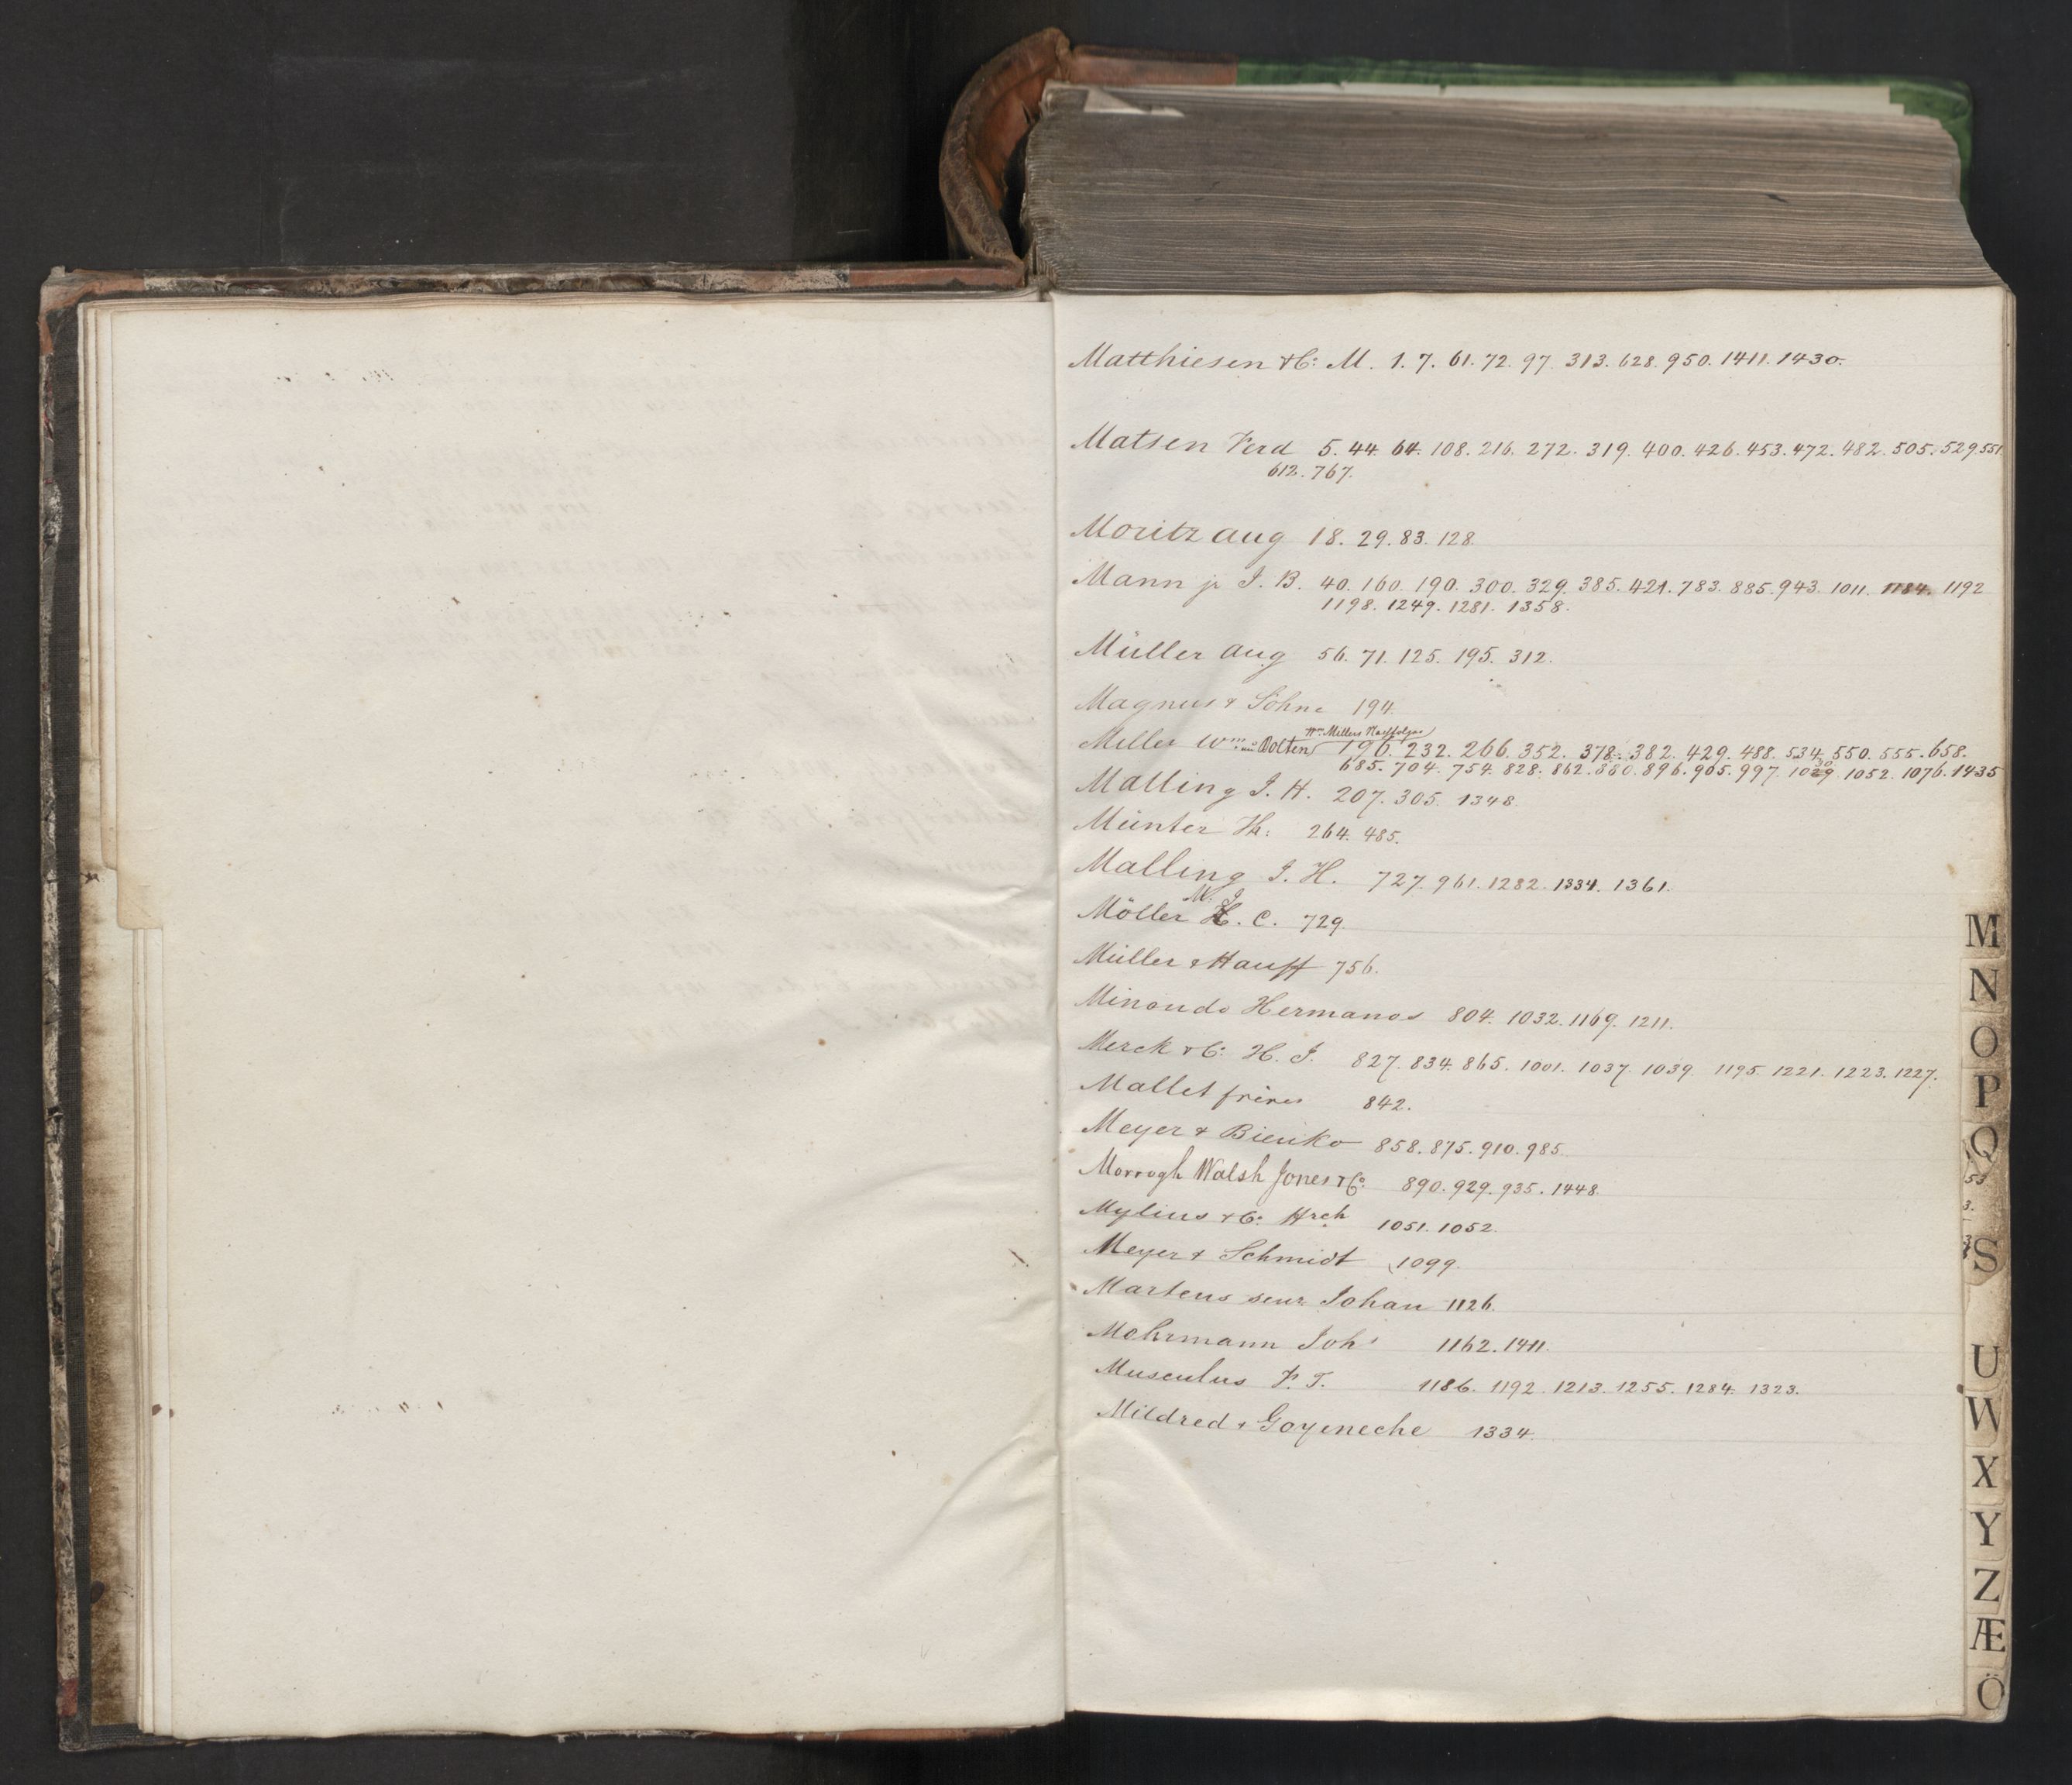 Matthiesen & Co: M. 1. 7. 61. 72. 97. 313. 628. 950. 1411. 1430.
Matsen Ferd 5. 44. 64. 108. 216. 272. 319. 400. 426. 453. 472. 482. 505. 529. 551
612. 767.
Moritz Aug 18. 29. 83. 128.
Mann jr J. B. 40. 160. 190. 300. 329. 385. 421. 783. 885. 943. 1011. 1184. 1192
1198. 1249. 1281. 1358.
Müller Aug 56. 71. 125. 195. 312.
Magnus & Söhne 194.
Wm Millers
Miller Wm Dolten 196. 232. 266. 352. 378. 382. 429. 488. 534. 550. 555. 658.
685. 704. 754. 828. 862. 880. 896. 905. 997. 1052. 1076. 1435
Malling J. H. 207. 305. 1348.
Münter 264. 485.
Malling J. H. 727. 961. 1282. 1334. 1361.
M. J
Möller H. C. 729.
Müller & Hauff 756.
Minondo Hermanos 804. 1032. 1169. 1211.
Merck & Co: H. J. 827. 834. 865. 1001. 1037. 1039. 1195. 1221. 1223. 1227.
Mallet frères 842.
Meyer & 858. 875. 910. 985.
Morrogh Walsh Jones & Co: 890. 929. 935. 1448.
Mylius & Co: Hrch 1051. 1052.
Meyer & Schmidt 1099.
Martens senr Johan 1126.
Mohrmann Johs 1162. 1411.
Musculus F. T. 1186. 1192. 1213. 1255. 1284. 1323.
Mildred & Goyeneche 1334.
M
N
O
P
Q
53
3.
S
U
W
X
Y
Z
Æ
Ö